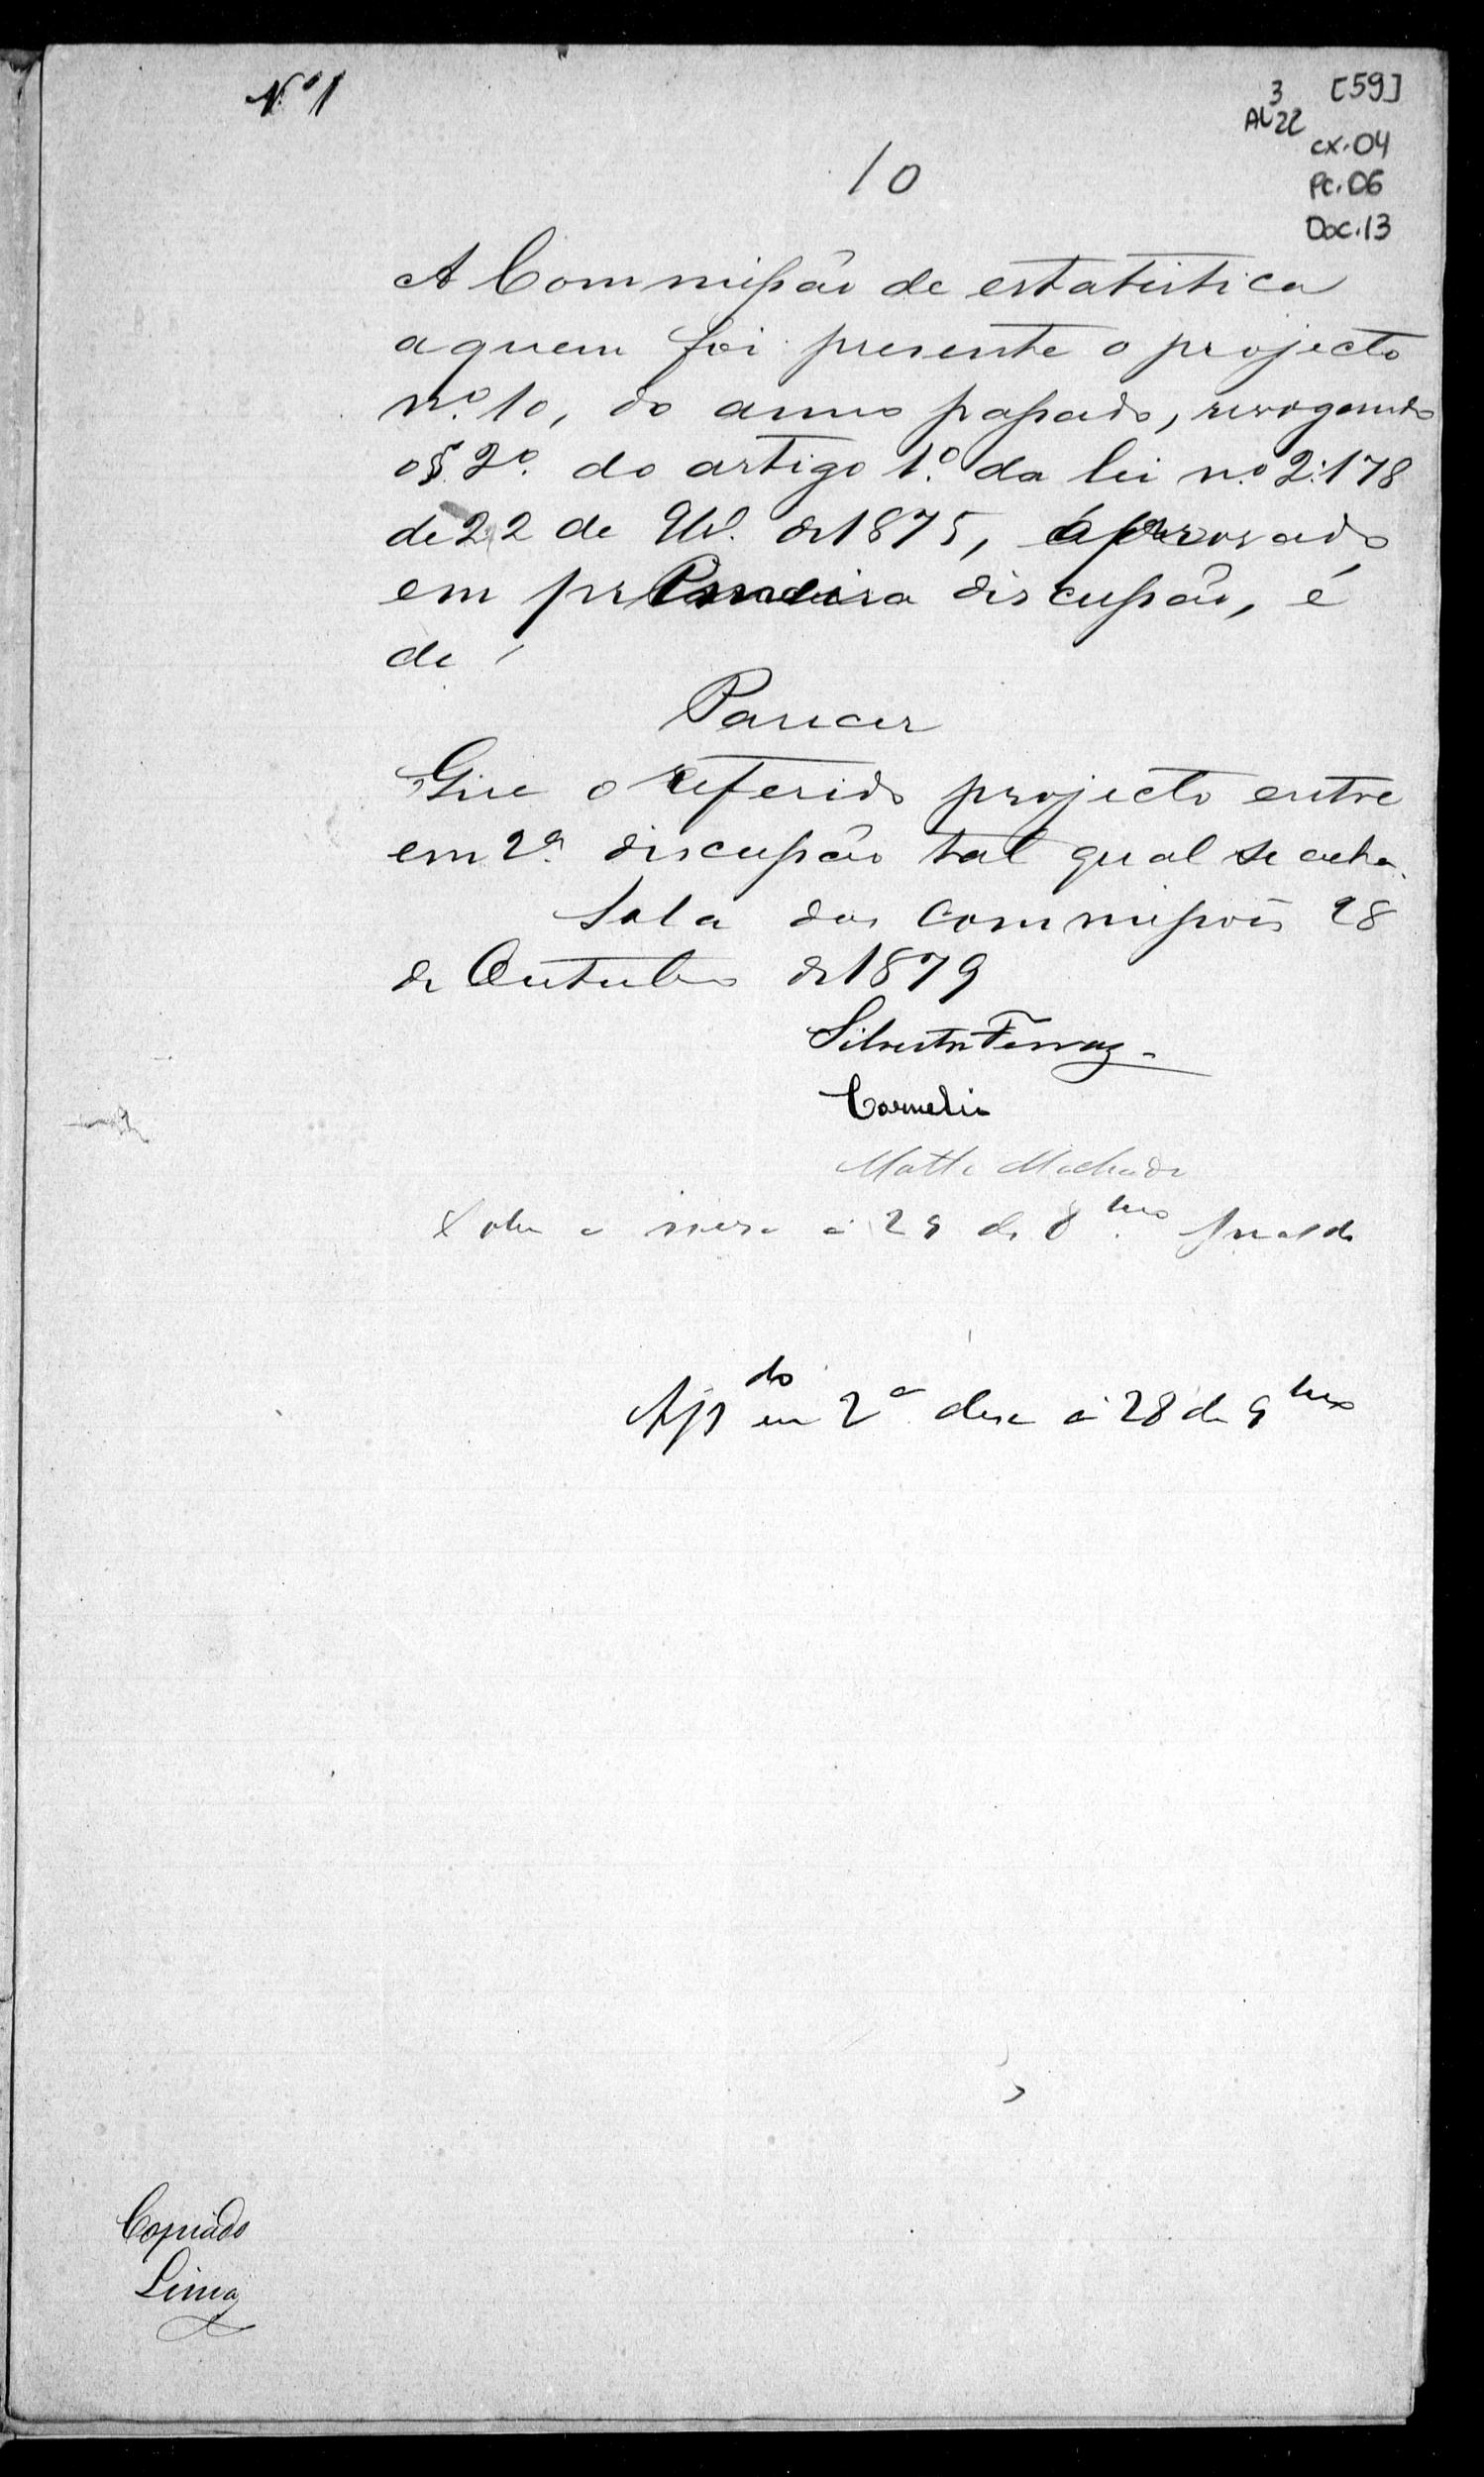 Nº 1
3 [59]
AL 22
cx. 04
Pc. 06
Doc. 13
10
A Commissão de estatistica
a quem foi presente o projecto
n.º 10, do anno passado, revogando
o § 2º. do artigo 1.º da lei n.º 2:178
de 22 de de 1875, approvado
em primeira discussão, é
de
Parecer
Que o referido projecto entre
em 2ª. discussão tal qual se acha.
Sala das Commissões 28
de Outubro de 1879
Silvestre Ferraz
Cornelio
Matta Machado
Sobre a mesa á 29 de 8bro
Apdo em 2ª disc á 28 de 9bro
Copiado
Lima